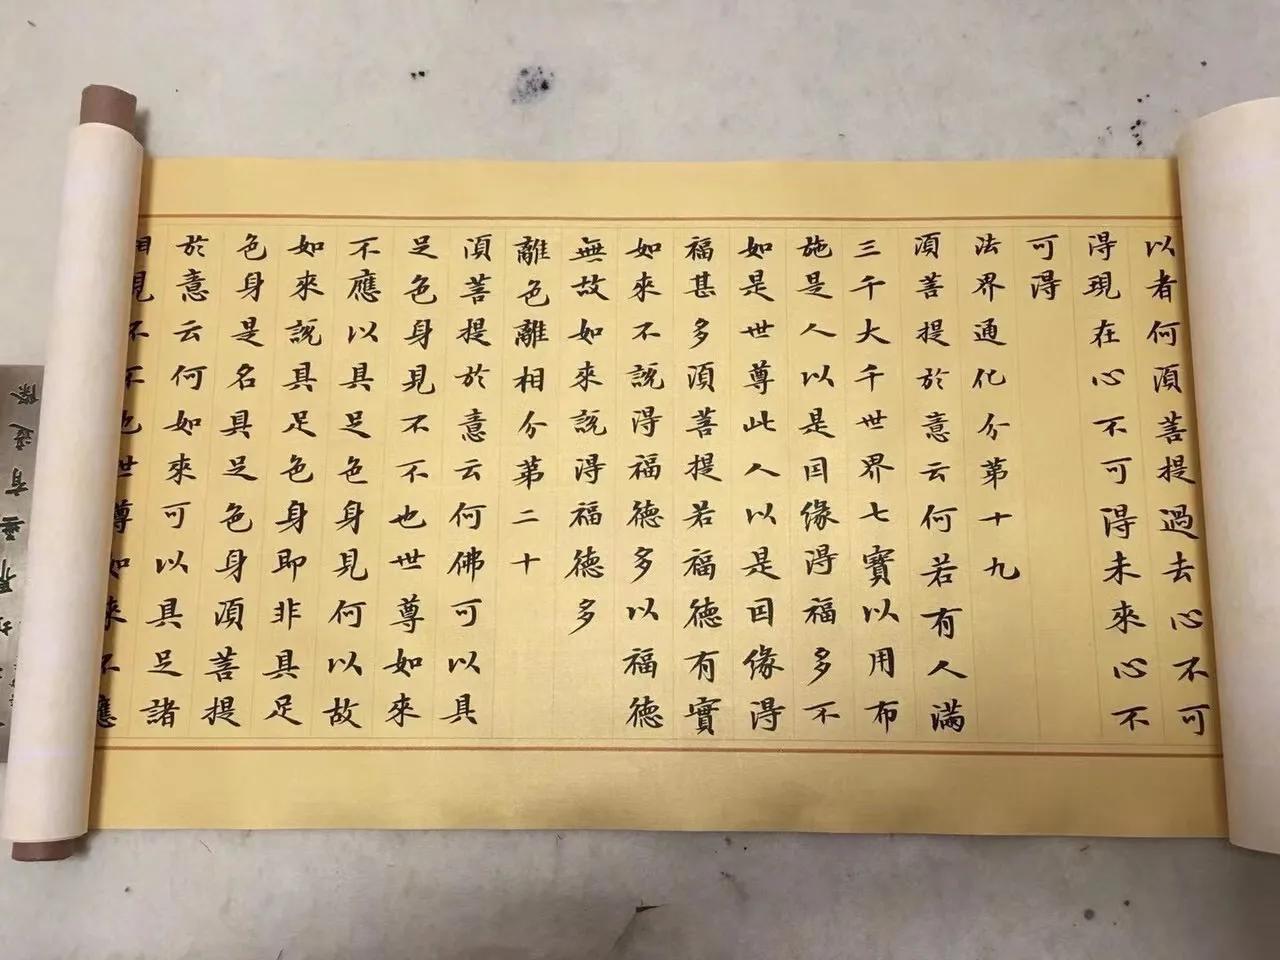 以者何須菩提過去心不可
得現在心不可得未來心不
可得
法界通化分第十九
須菩提於意云何若有人滿
三千大千世界七寶以用布
施是人以是因緣得福多不
如是世尊此人以是因緣得
福甚多須菩提若福德有實
如來不說得福德多以福德
無故如來說得福德多
離色離相分第二十
須菩提於意云何佛可以具
足色身見不不也世尊如來
不應以具足色身見何以故
如來說具足色身即非具足
色身是名具足色身須菩提
於意云何如來可以具足諸
相見不不也世尊如來不應